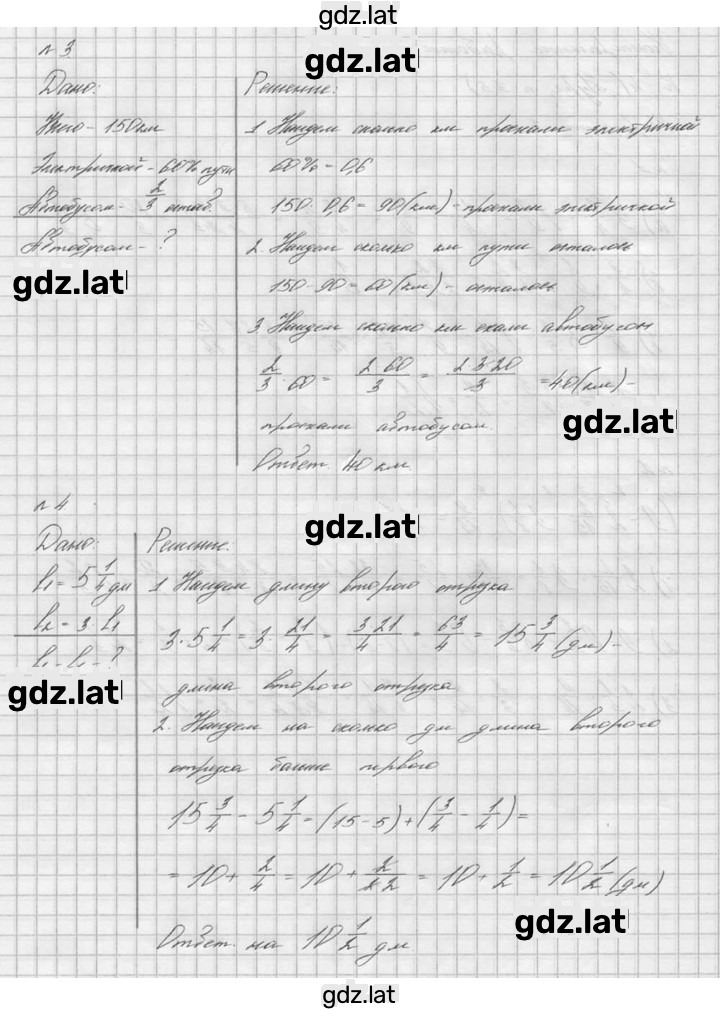 gdz.lat
№ 3.
gdz.lat
Дано:
Всего - 150 км
Электричкой - 60% пути
Автобусом - 2/3 остав.
Автобусом - ?
gdz.lat
Решение:
1. Найдем сколько км проехали электричкой
60% = 0,6
150 · 0,6 = 90 (км) - проехали электричкой
2. Найдем сколько км пути осталось
150 - 90 = 60 (км) - осталось
3. Найдем сколько км ехали автобусом
2/3 · 60 = 2·60/3 = 2·3·20/3 = 40 (км) -
gdz.lat
проехали автобусом.
Ответ: 40 км.
№ 4.
gdz.lat
Дано:
l₁ = 5 1/4 дм
l₂ = 3 · l₁
l₂ - l₁ - ?
gdz.lat
Решение:
1. Найдем длину второго отрезка
3 · 5 1/4 = 3 · 21/4 = 3·21/4 = 63/4 = 15 3/4 (дм) -
длина второго отрезка
2. Найдем на сколько дм длина второго
отрезка больше первого
15 3/4 - 5 1/4 = (15 - 5) + (3/4 - 1/4) =
= 10 + 2/4 = 10 + 2/2·2 = 10 + 1/2 = 10 1/2 (дм)
gdz.lat
Ответ: на 10 1/2 дм.
gdz.lat